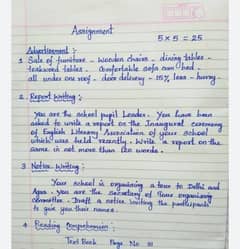 Assignment
5 x 5 = 25
Advertisement :
1 Sale of furniture - wooden chairs - dining tables -
teakwood tables - comfortable sofa and bed -
all under one roof - door delivery - 15% less - hurry.
2. Report Writing :
You are the school pupil Leader. You have been
asked to write a report on the Inaugural ceremony
of English Literary Association of your school
which was held recently. Write a report on the
same in not more than ten words.
3. Notice Writing :
Your school is organising a tour to Delhi and
Agra. you are the secretary of Tour organising
committee. Draft a notice inviting the participants
to give your their names.
4 Reading Comprehension :
Text Book Page No 111